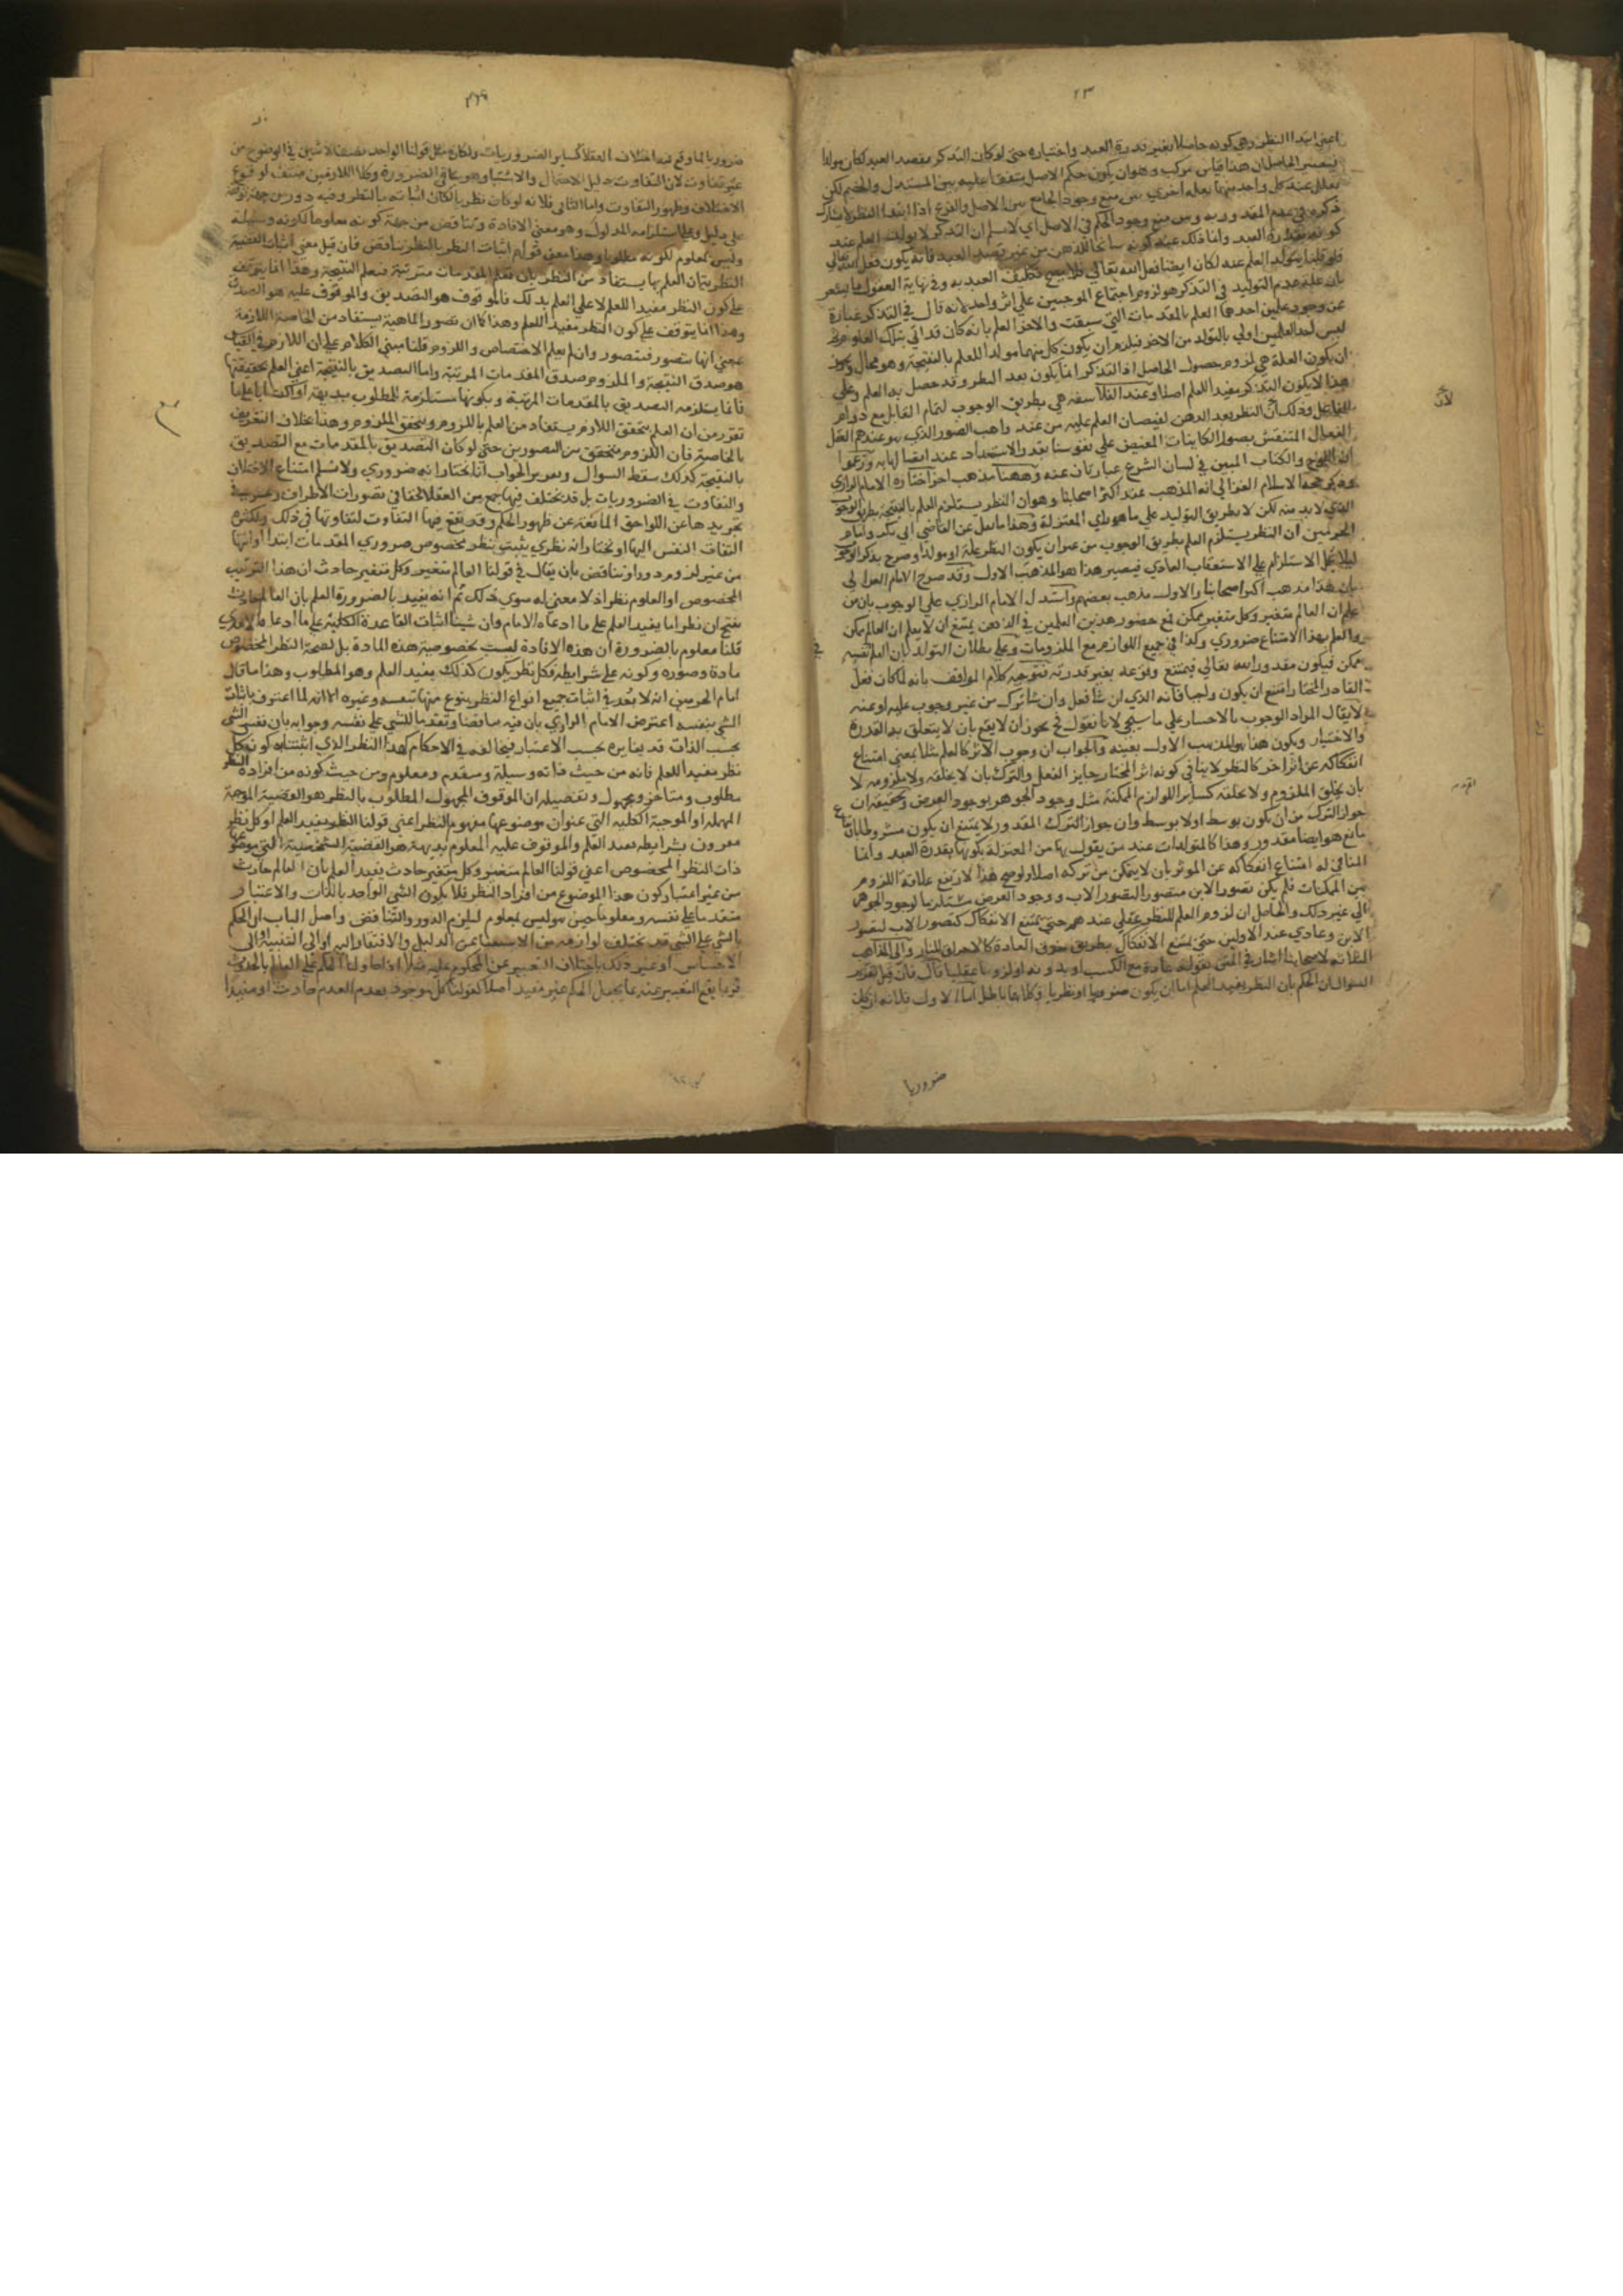 ٢٣
اعني ابتدا النظر وهي كونه حاصلا بغير قدرة العبد واختياره حتى لو كان التذكر بقصد العبد لكان مولدا
فيصير الحاصل ان هذا قياس مركب وهو ان يكون حكم الاصل متفقا عليه بين المستدل والخصم لكن
يعلل عند كل واحد منهما بعلة اخري بين منع وجود الجامع بين الاصل والفرع اذا ابتدا النظر لا يشارك
ذكره في عدم المقدورية وبين منع وجود الحكم في الاصل اي لا نسلم ان التذكر لا يولد العلم عند
كونه بقدرة العبد وانما ذلك عند كونه سانحا للذهن من غير قصد العبد فانه يكون فعل الله تعالي
فلو قلنا بتولد العلم عنه لكان ايضا فعل الله تعالي فلا يصح تكليف العبد به وفي نهاية العقول ما يشعر
بان علة عدم التوليد في التذكر هو لزوم اجتماع الموجبين علي اثر واحد لانه قال في التذكر عبارة
عن وجود علمين احدهما العلم بالمقدمات التي سبقت والاخر العلم بانه كان قد اتي بتلك العلوم
ليس احد العلمين اولي بالتولد من الاخر فيلزم ان يكون كل منهما مولدا للعلم بالنتيجة وهو محال
ان يكون العلة هي لزوم حصول الحاصل اذ التذكر انما يكون بعد النظر وقد حصل به العلم وعلي
هذا لا يكون التذكر مفيدا للعلم اصلا وعند الفلاسفة هي بطريق الوجوب لتمام القابل مع دوام
الفاعل وذلك ان النظر يعد الذهن لفيضان العلم عليه من عند واهب الصور الذي هو عندهم العقل
الفعال المنتقش بصور الكاينات المفيض علي نفوسنا بقدر الاستعداد عند اتصالها به وزعموا
ان اللوح والكتاب المبين في لسان الشرع عبارتان عنه وههنا مذهب اخر اختاره الامام الرازي
وذكر حجة الاسلام الغزالي انه المذهب عند اكثر اصحابنا وهو ان النظر يستلزم العلم بالنتيجة بطريق الوجوب
الذي لا بد منه لكن لا بطريق التوليد علي ما هو راي المعتزلة وهذا ما نقل عن القاضي ابي بكر وامام
الحرمين ان النظر يستلزم العلم بطريق الوجوب من غير ان يكون النظر علة او مولدا وصرح بذكر الوجوب
ليلا يحمل الاستلزام علي الاستعقاب العادي فيصير هذا هو المذهب الاول وقد صرح الامام الغزالي
بان هذا مذهب اكثر اصحابنا والاول مذهب بعضهم واستدل الامام الرازي علي الوجوب بان من
علم ان العالم متغير وكل متغير ممكن فمع حضور هذين العلمين في الذهن يمتنع ان لا يعلم ان العالم ممكن
والعلم بهذا الامتناع ضروري وكذا في جميع اللوازم مع الملزومات وعلي بطلان التولد بان العلم في نفسه
ممكن فيكون مقدورا لله تعالي فيمتنع وقوعه بغير قدرته فتوجه كلام المواقف بانه لما كان فعل
القادر المختار امتنع ان يكون واجبا فانه الذي ان شا فعل وان شا ترك من غير وجوب عليه او عنه
لا يقال المراد الوجوب بالاختيار علي ما سيجي لانا نقول فح يجوز ان لا يقع بان لا يتعلق به القدرة
والاختيار ويكون هذا هو المذهب الاول بعينه والجواب ان وجوب الاثر كالعلم مثلا بمعني امتناع
انفكاكه عن اثر اخر كالنظر لا ينافي كونه اثر المختار جايز الفعل والترك بان لا يخلقه ولا ملزومه لا
بان يخلق الملزوم ولا يخلقه كساير اللوازم الممكنة مثل وجود الجوهر لوجود العرض وتحقيقه ان
جواز الترك من ان يكون بوسط او لا بوسط وان جواز الترك المقدور لا يمتنع ان يكون مشروطا بارتفاع
مانع هو ايضا مقدور وهذا كالمتولدات عند من يقول بها من المعتزلة بكونها بقدرة العبد وانما
المنافي له امتناع انفكاكه عن الموثر بان لا يتمكن من تركه اصلا ولو صح هذا لارتفع علاقة اللزوم
بين الممكنات فلم يكن تصور الابن مستلزما لتصور الاب ووجود العرض مستلزما لوجود الجوهر
الي غير ذلك والحاصل ان لزوم العلم للنظر عقلي عندهم حتى يمتنع الانفكاك كتصور الاب لتصور
الابن وعادي عند الاولين حتى لا يمتنع الانفكاك بطريق خرق العادة كالاحراق للنار والي المذاهب
الثلاثة لاصحابنا اشار في المتن بقوله عادة مع الكسب او بدونه او لزوما عقليا قال فان قيل تقرير
السوال ان الحكم بان النظر يفيد العلم اما ان يكون ضروريا او نظريا وكلاهما باطل اما الاول فلانه لو كان
ضروريا
ضروريا لما وقع فيه اختلاف العقلا كساير الضروريات ولكان مثل قولنا الواحد نصف الاثنين في الوضوح من
غير تفاوت لان التفاوت دليل الاحتمال والاشتباه وهو ينافي الضرورة وكلا اللازمين منتف لوقوع
الاختلاف وظهور التفاوت واما الثاني فلانه لو كان نظريا لكان اثباته بالنظر وفيه دور من جهة توقفه
علي دليل وعلي استلزامه المدلول وهو معني الافادة وتناقض من جهة كونه معلوما لكونه وسيلة
وليس بمعلوم لكونه مطلوبا وهذا معني قولهم اثبات النظر بالنظر تناقض فان قيل معني اثبات القضية
النظرية ان العلم بها يستفاد من النظر بان نعلم المقدمات مترتبة فنعلم النتيجة وهذا انما يتوقف
علي كون النظر مفيدا للعلم لا علي العلم بذلك فالموقوف هو التصديق والموقوف عليه هو الصدق
وهذا كما ان تصور الماهية يستفاد من الخاصة اللازمة
بمعني انها تتصور فتتصور وان لم يعلم الاختصاص واللزوم قلنا مبني الكلام علي ان اللازم في القياس
هو صدق النتيجة والملزوم صدق المقدمات المرتبة واما التصديق بالنتيجة اعني العلم بحقيقتها
فانما يستلزمه التصديق بالمقدمات المرتبة وبكونها مستلزمة للمطلوب بديهة او اكتسابا علي ما
تقرر من ان العلم بتحقق اللازم يستفاد من العلم باللزوم وبتحقق الملزوم وهذا بخلاف التعريف
بالخاصة فان اللزوم متحقق بين التصورين حتى لو كان التصديق بالمقدمات مع التصديق
بالنتيجة كذلك سقط السوال وتقرير الجواب انا نختار انه ضروري ولا نسلم امتناع الاختلاف
والتفاوت في الضروريات بل قد يختلف فيها جمع من العقلا لخفا في تصورات الاطراف وعسر في
تجريدها عن اللواحق المانعة عن ظهور الحكم وقد يقع فيها التفاوت لتفاوتها في ذلك ولكثرة
التفات النفس اليها او نختار انه نظري يثبت بنظر مخصوص ضروري المقدمات ابتدا او انتها
من غير لزوم دور او تناقض بان يقال في قولنا العالم متغير وكل متغير حادث ان هذا الترتيب
المخصوص او العلوم نظر اذ لا معني له سوي ذلك ثم انه يفيد بالضرورة العلم بان العالم حادث
ينتج ان نظرا ما يفيد العلم علي ما ادعاه الامام وان شينا اثبات القاعدة الكلية علي ما ادعاه الامدي
قلنا معلوم بالضرورة ان هذه الافادة ليست بخصوصية هذه المادة بل لصحة النظر المخصوص
مادة وصورة وكونه علي شرايطه فكل نظر يكون كذلك يفيد العلم وهو المطلوب وهذا ما قال
امام الحرمين انه لا بعد في اثبات جميع انواع النظر بنوع منها يثبت نفسه وغيره الا انه لما اعترف باثبات
الشي بنفسه اعترض الامام الرازي بان فيه تناقضا وتقدما للشي علي نفسه وجوابه بان نفس الشي
بحسب الذات قد يغايره بحسب الاعتبار فيخالفه في الاحكام كهذا النظر الذي اثبتنا به كون كل
نظر مفيدا للعلم فانه من حيث ذاته وسيلة ومتقدم ومعلوم ومن حيث كونه من افراد النظر
مطلوب ومتاخر ومجهول وتفصيله ان الموقوف المجهول المطلوب بالنظر هو القضية الموجبة
المهملة او الموجبة الكلية التي عنوان موضوعها مفهوم النظر اعني قولنا النظر يفيد العلم او كل نظر
مقرون بشرايطه يفيد العلم والموقوف عليه المعلوم بديهة هو القضية الشخصية التي موضوعها
ذات النظر المخصوص اعني قولنا العالم متغير وكل متغير حادث يفيد العلم بان العالم حادث
من غير اعتبار كون هذا الموضوع من افراد النظر فلا يكون الشي الواحد بالذات والاعتبار
متقدما علي نفسه ومعلوما حين هو ليس بمعلوم ليلزم الدور والتناقض واصل الباب ان الحكم
بالشي علي الشي قد يختلف لوازمه من الاستغنا عن الدليل والافتقار اليه او الي التنبيه او الي
الاحساس او غير ذلك باختلاف التعبير عن المحكوم عليه مثلا اذا حاولنا الحكم علي العالم بالحدوث
فربما يقع التعبير عنه بما يجعل الحكم غير مفيد اصلا كقولنا كل موجود بعد العدم حادث او مفيدا